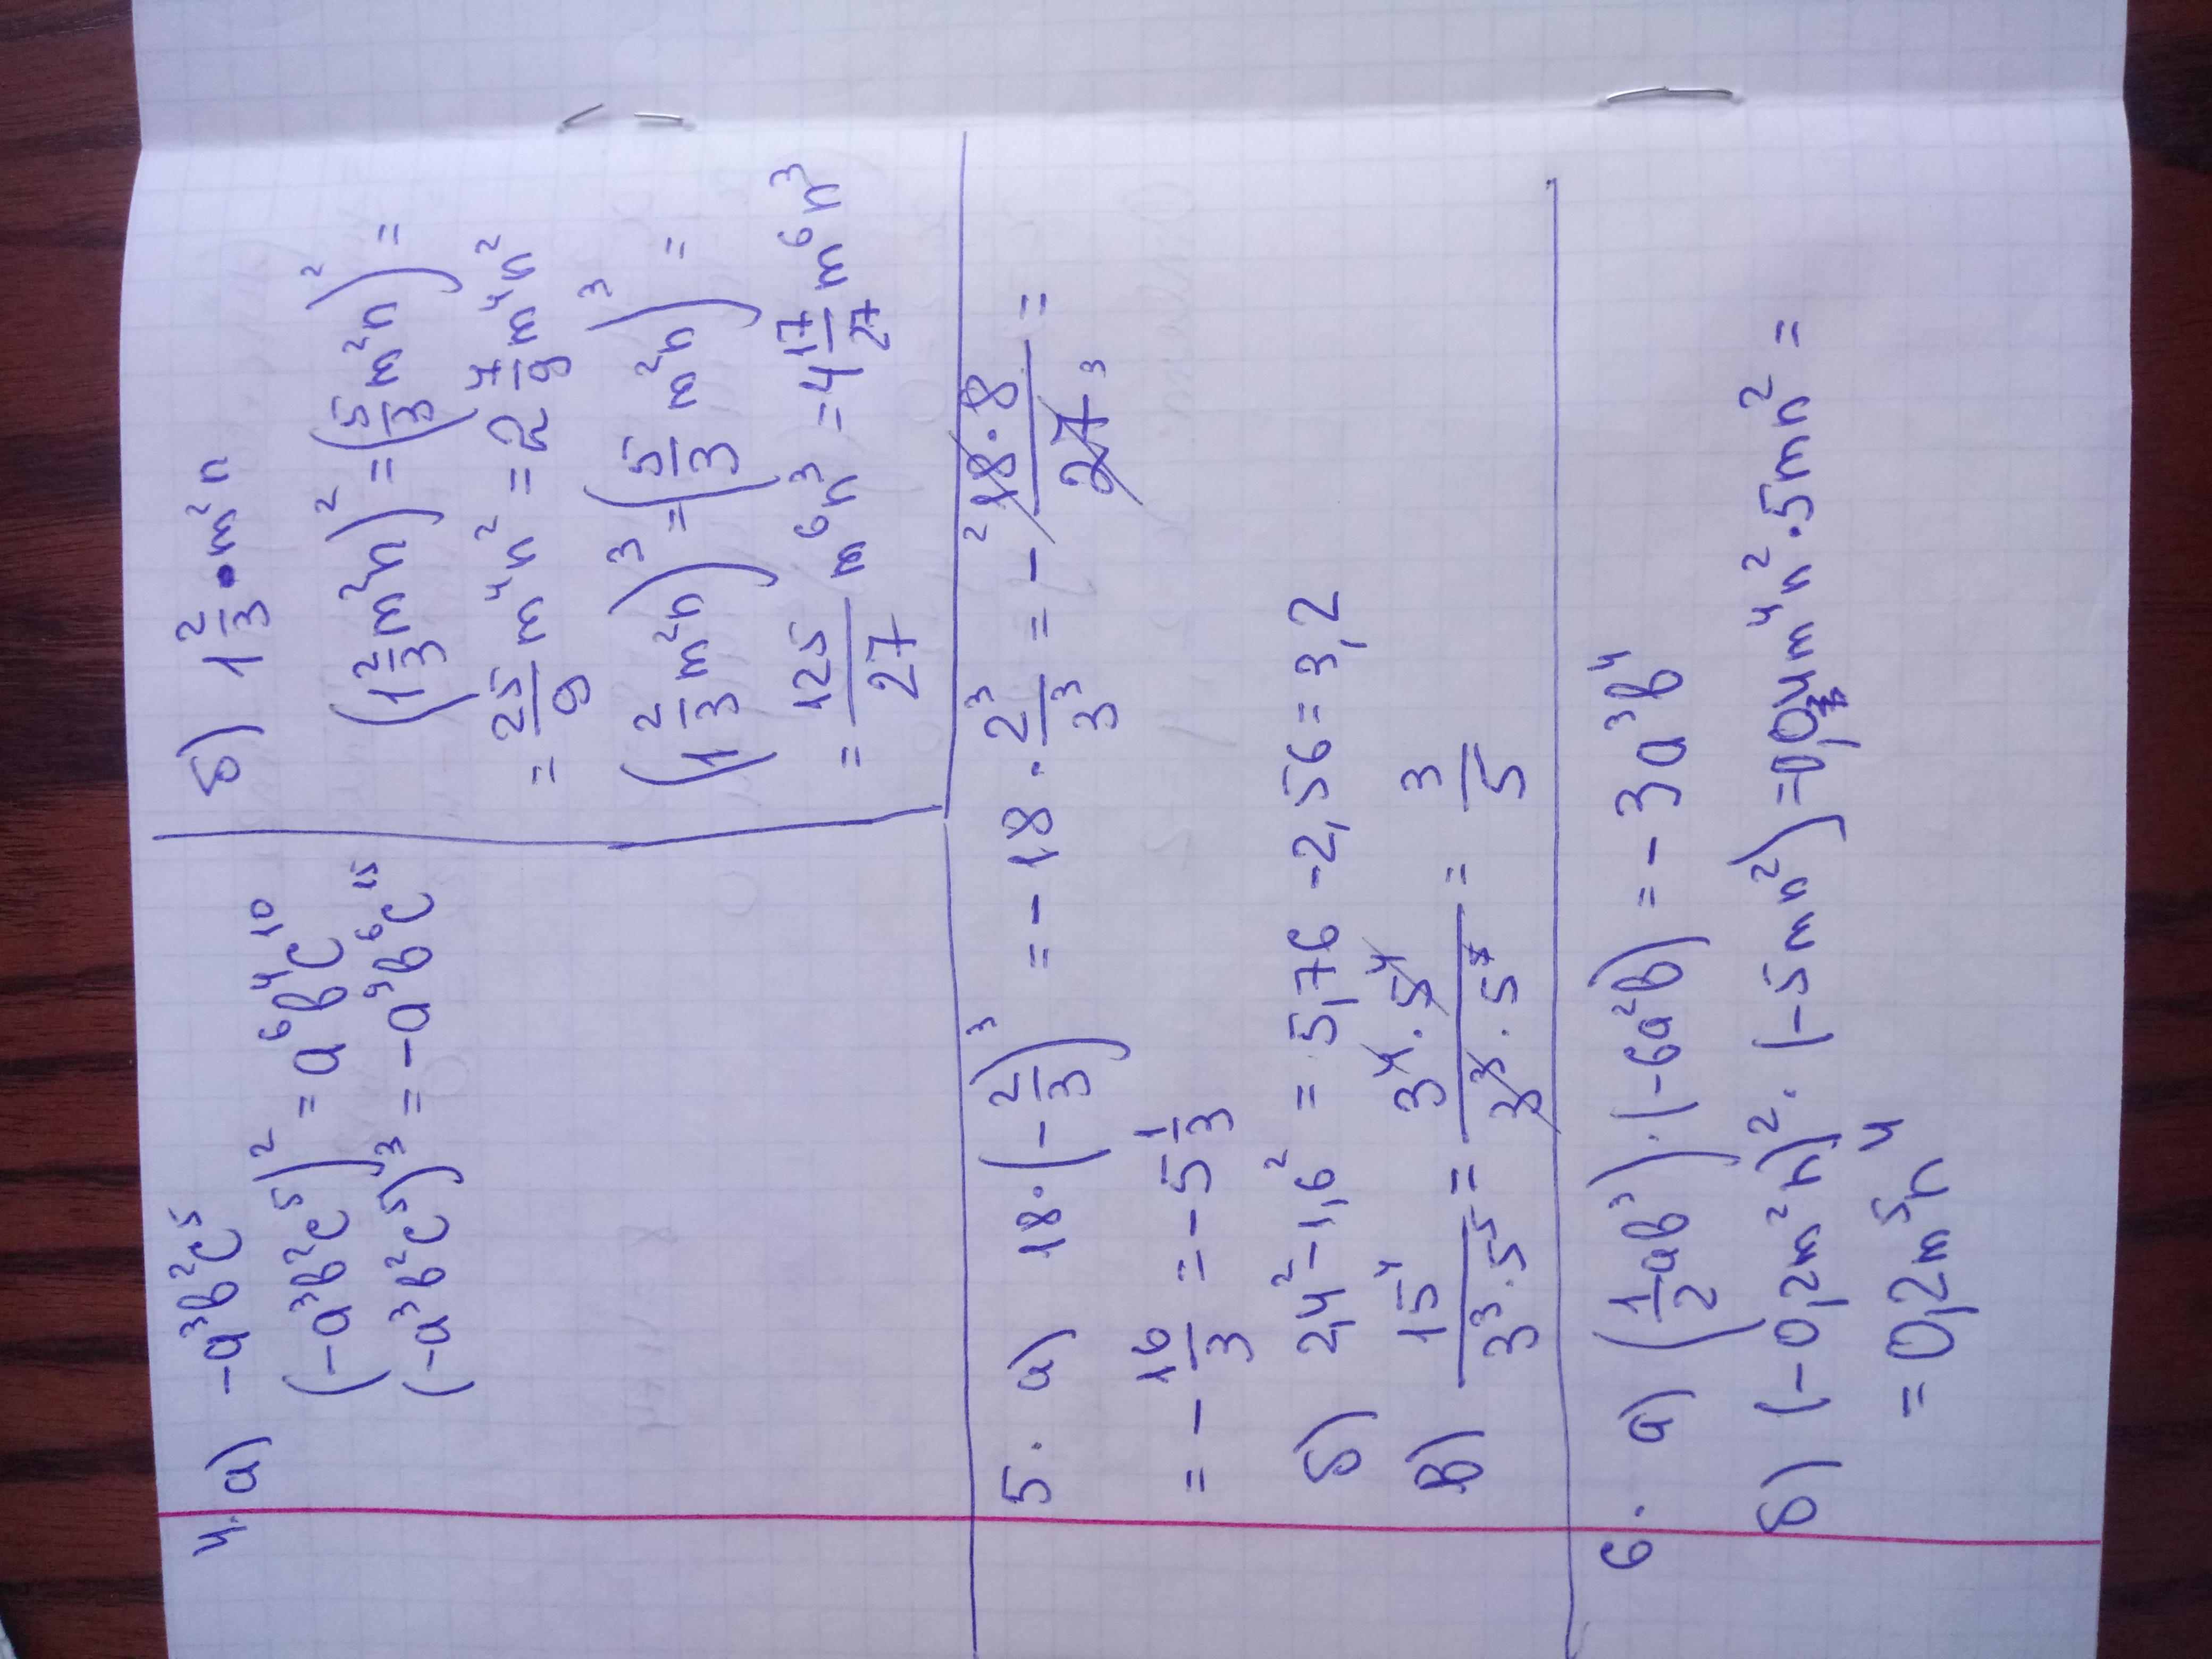 4. а) -a³b²c⁵
(-a³b²c⁵)² = a⁶b⁴c¹⁰
(-a³b²c⁵)³ = -a⁹b⁶c¹⁵
б) 1 2/3 · m²n
(1 2/3 m²n)² = (5/3 m²n)² =
= 25/9 m⁴n² = 2 7/9 m⁴n²
(1 2/3 m²n)³ = (5/3 m²n)³ =
= 125/27 m⁶n³ = 4 17/27 m⁶n³
5. а) 18 · (-2/3)³ = -18 · 2³/3³ = - ² 18·8/27 ³ =
= - 16/3 = -5 1/3
б) 2,4² - 1,6² = 5,76 - 2,56 = 3,2
в) 15⁴/3³·5⁵ = 3⁴·5⁴/3³·5⁵ = 3/5
6. а) (1/2 ab³) · (-6a²b) = -3a³b⁴
б) (-0,2m²n)² · (-5mn²) = -0,04m⁴n² · 5mn² =
= 0,2m⁵n⁴